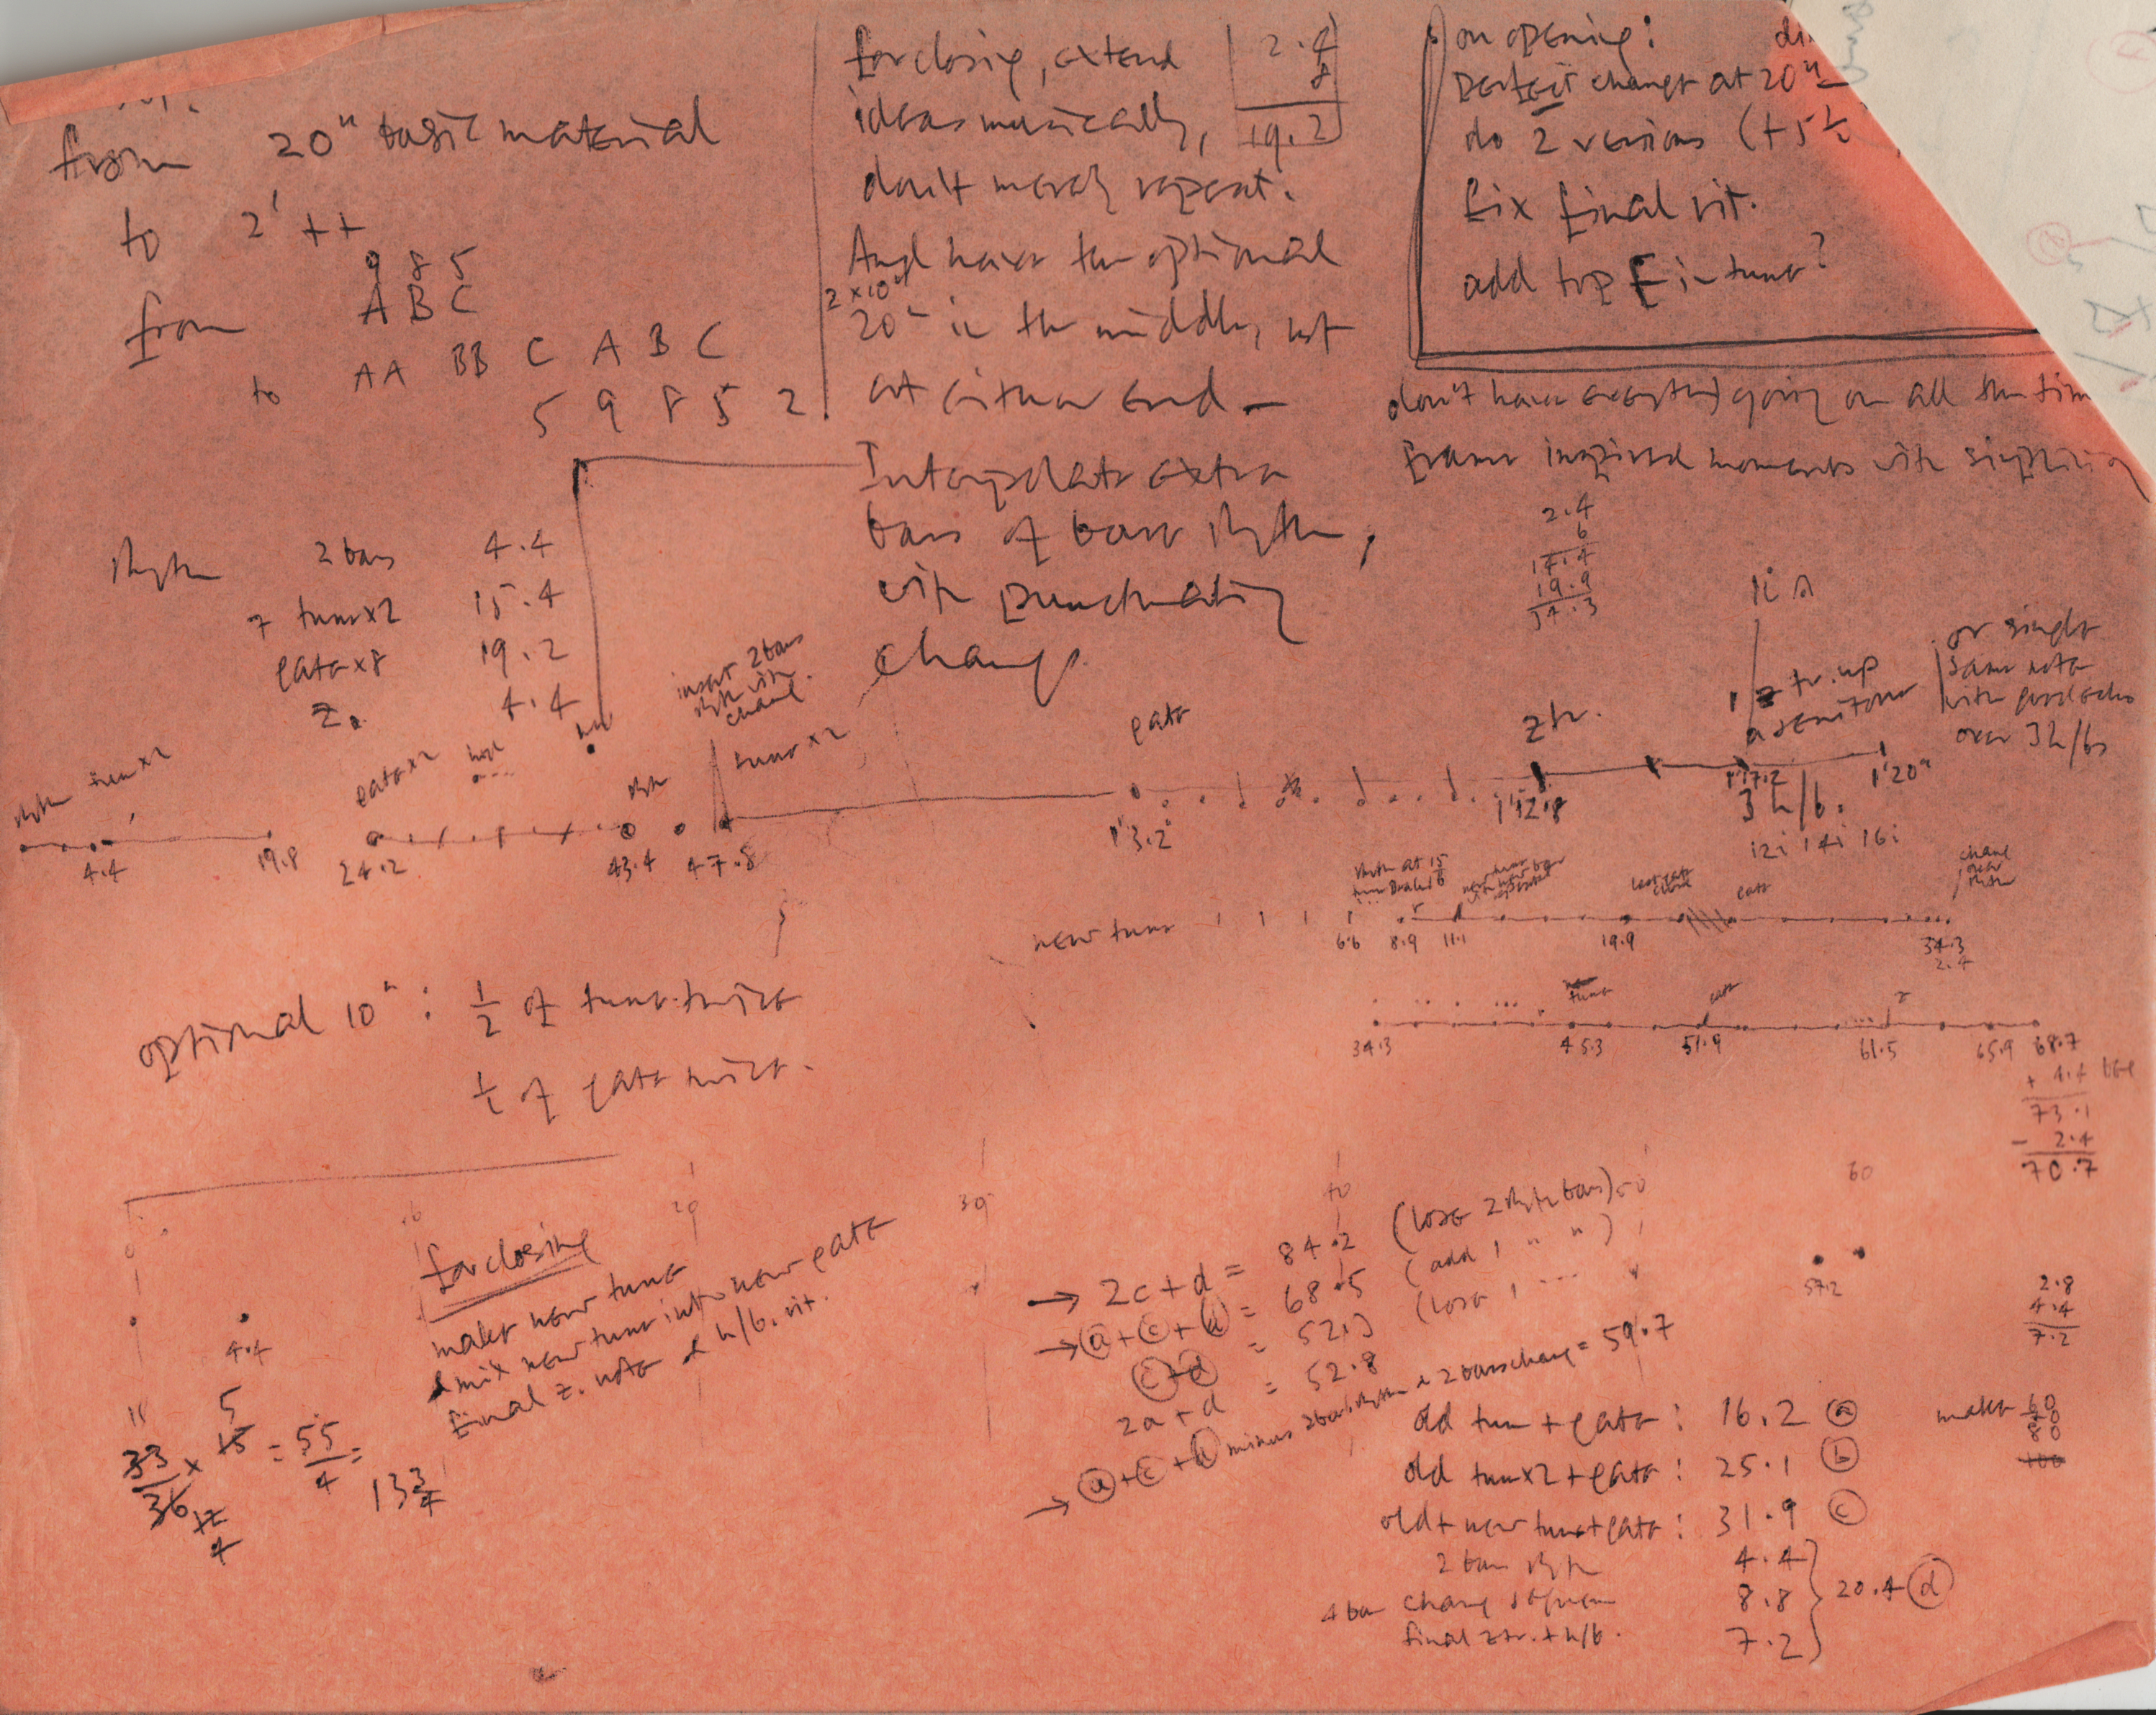 from 20" basic material
to 2' ++
9 8 5
from A B C
to AA BB C A B C
5 9 8 5 2
for closing, extend
ideas musically,
don't merely repeat.
And have the optional
2 x 10"
20" in the middle, not
at either end —
Interpolate extra
bars of bass rhythm,
with punctuating
change.
2.4
8
19.2
on opening:
perfect change at 20"
do 2 versions (+5
fix final rit.
add top E in tune?
don't have everything going on all the time
frame inspired moments with
2.4
6
14.4
19.9
34.3
Rhythm 2 bars 4.4
7 tune x2 15.4
gate x8 19.2
z. 4.4
insert 2 bars
rhythm with
change.
rhythm tune x2
gate x2
rhythm
tune x2
gate
z tr.
z tr. up
a semitone
or single
same note
with
over 3 h/bs
4.4
19.8
24.2
43.4
47.8
1'3.2
1'12.8
1'17.2
1'20"
3 h/b.
12i 14i 16i
new tune
gate
change
over
rhythm
6.6 8.9 11.1 19.9 34.3
2.4
tune
gate
z
34.3 45.3 51.9 61.5 65.9 68.7
+ 4.4
73.1
- 2.4
70.7
optional 10": 1/2 of tune twice
1/2 of gate twice.
30
60
57.2
for closing
make new tune
& mix new tune into new gate
final z. note & h/b. rit.
4.4
11 5
33/36 x 15 = 55/4 =
12
4
13 3/4
→ 2c + d = 84.2 (lose 2 rhythm bars)
→ a + c + d = 68.5 (add 1 " " )
c + d = 52.3 (lose 1 ...
2a + d = 52.8
→ a + c + d minus 2 bars rhythm & 2 bars change = 59.7
2.8
4.4
7.2
old tune + gate: 16.2 a
old tune x2 + gate: 25.1 b
old + new tune + gate: 31.9 c
2 bar rhythm 4.4
4 bar change sequence 8.8
final z tr. + h/b. 7.2
20.4 d
make 60
80
100